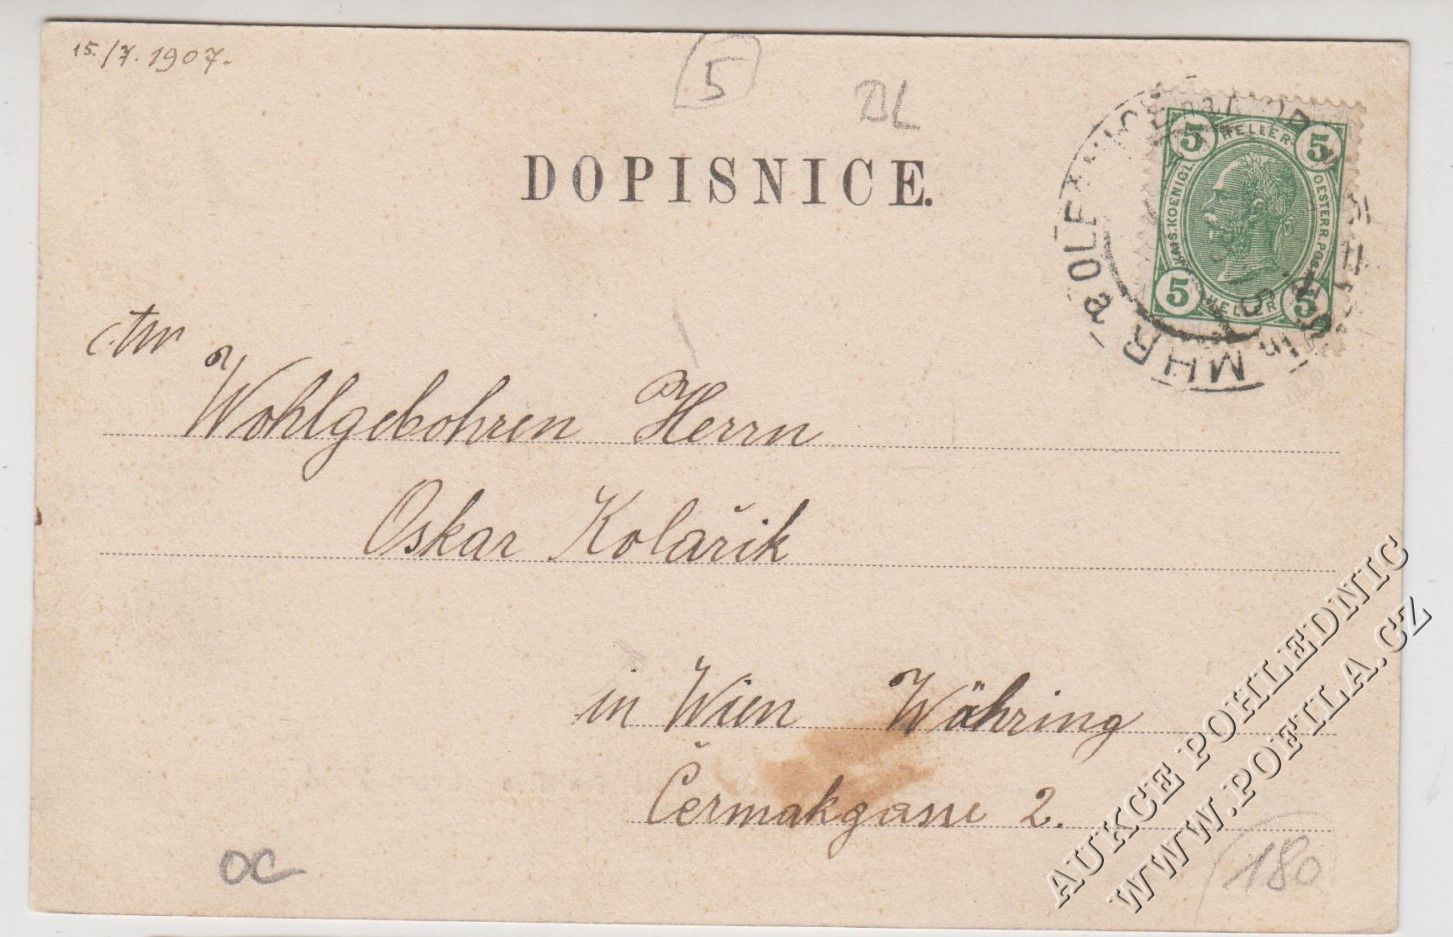 15./7. 1907.
5
BL
DOPISNICE.
5 HELLER 5
KAIS. KOENIGL. OESTERR. POST
5 HELLER 5
in MHR
Wohlgebohren Herrn
Oskar Kolařik
in Wien Währing
Čermakgasse 2.
OC
180
AUKCE POHLEDNIC
WWW.POFILA.CZ